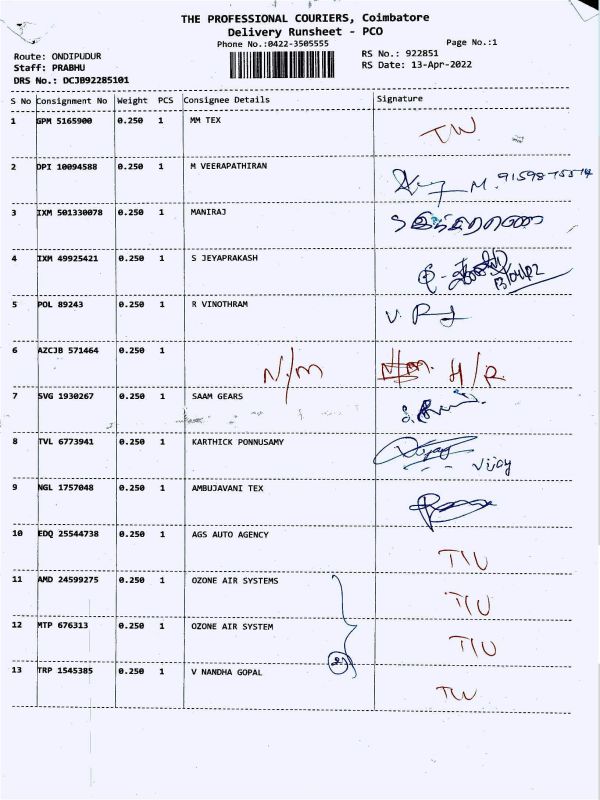 THE PROFESSIONAL COURIERS, Coimbatore
Delivery Runsheet - PCO
Phone No.:0422-3505555
Page No.:1
Route: ONDIPUDUR
RS No.: 922851
Staff: PRABHU
RS Date: 13-Apr-2022
DRS No.: DCJB92285101
S No Consignment No Weight PCS Consignee Details Signature
1 GPM 5165900 0.250 1 MM TEX
2 DPI 10094588 0.250 1 M VEERAPATHIRAN
3 IXM 501330078 0.250 1 MANIRAJ
4 IXM 49925421 0.250 1 S JEYAPRAKASH
13/04/22
5 POL 89243 0.250 1 R VINOTHRAM
6 AZCJB 571464 0.250 1 N/M N/M. H/R
7 SVG 1930267 0.250 1 SAAM GEARS
8 TVL 6773941 0.250 1 KARTHICK PONNUSAMY
Vijay
9 NGL 1757048 0.250 1 AMBUJAVANI TEX
10 EDQ 25544738 0.250 1 AGS AUTO AGENCY
11 AMD 24599275 0.250 1 OZONE AIR SYSTEMS
12 MTP 676313 0.250 1 OZONE AIR SYSTEM
13 TRP 1545385 0.250 1 V NANDHA GOPAL